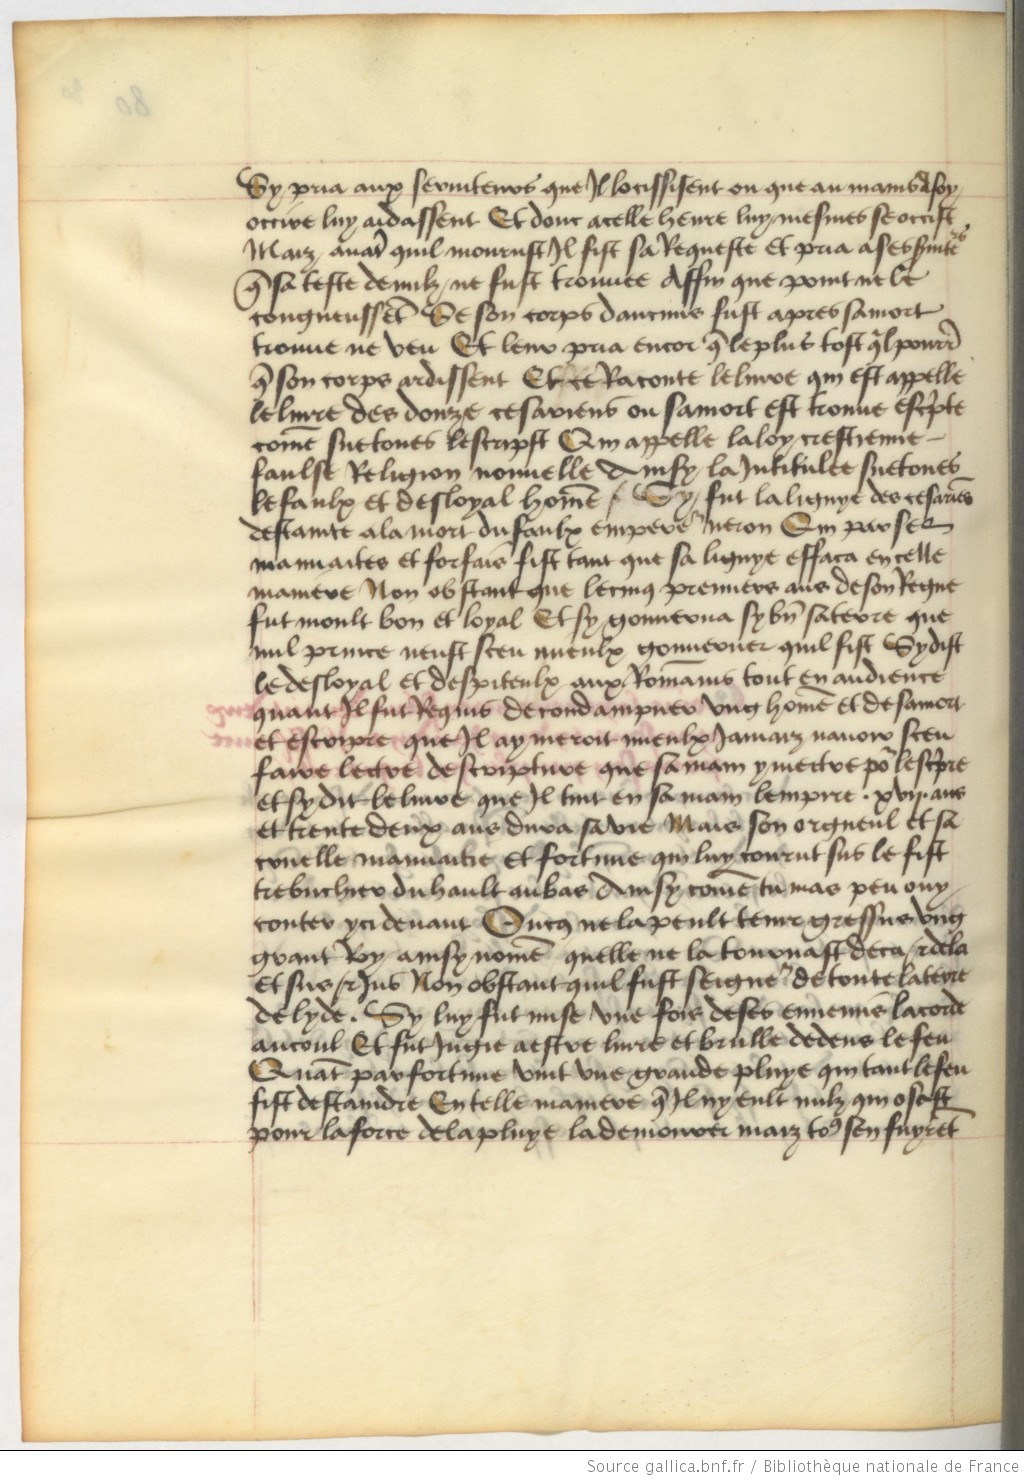 Sy pria aux seruiteurs que Il locissisent ou que au mains de soy
occire luy aidassent Et donc a celle heure luy mesmes se occist
Maiz auāt quil mourust Il fist sa Requeste et pria a ses s̄uiteʳˢ
q̄ sa teste de nulz ne fust trouuee Affin que point ne le
congneussēt Se son corps daucuns fust apres sa mort
trouue ne veu Et leur pria encor q̄ le plus tost q̄l pourr̄
q̄ son corps ardissent Et ce Raconte le liure qui est appelle
le liure des douze cesariens ou sa mort est trouue esc̄pte
com̄e suetones lescripst Qui appelle la loy crestienne
faulse Religion nouuelle Ainsy la Intitulee suetones
le faulx et desloyal hom̄e / Sy fut la lignye des cesariēs
destainte a la mort du faulx empereʳ neron Qui par ses
mauuaites et forfais fist tant que sa lignye effaca en celle
maniere Non obstant que le cinq premiers ans de son Regne
fut moult bon et loyal Et sy gouuerna sy bn̄ sa terre que
nul prince neust sceu mieulx gouuerner quil fist Sy dist
le desloyal et despiteulx aux Romāins tout en audience
quant Il fut Requis de condampner vng hom̄e et de sa mort
et escripre que Il aymeroit mieulx Jamaiz nauoir sceu
faire lectre descripture que sa main y mectre po᷑ lesc̄pre
et sy dit le liure que Il tint en sa main lempire . xvij. ans
et trente deux ans dura sa vie Mais son orgueul et sa
cruelle mauuaitie et fortune qui luy courut sus le fist
trebuchier du hault au bas Ainsy com̄e tu mas peu ouy
conter yci deuant Oncq ne la peult tenir gressus vng
grant Roy ainsy nom̄e quelle ne la tournast deca / r dela
et sus / r Jus Non obstant quil fust seigneʳ de toute la terre
de lyde . Sy luy fut mise vne fois de ses ennemis la corde
au coul Et fut Jugie a estre liure et brulle dedens le feu
Quāt par fortune vint vne grande pluye qui tant le feu
fist destaindre En telle maniere q̄ Il ny eult nulz qui osast
pour la force de la pluye la demourer maiz to⁹ sen fuyrēt
Source gallica.bnf.fr / Bibliothèque nationale de France